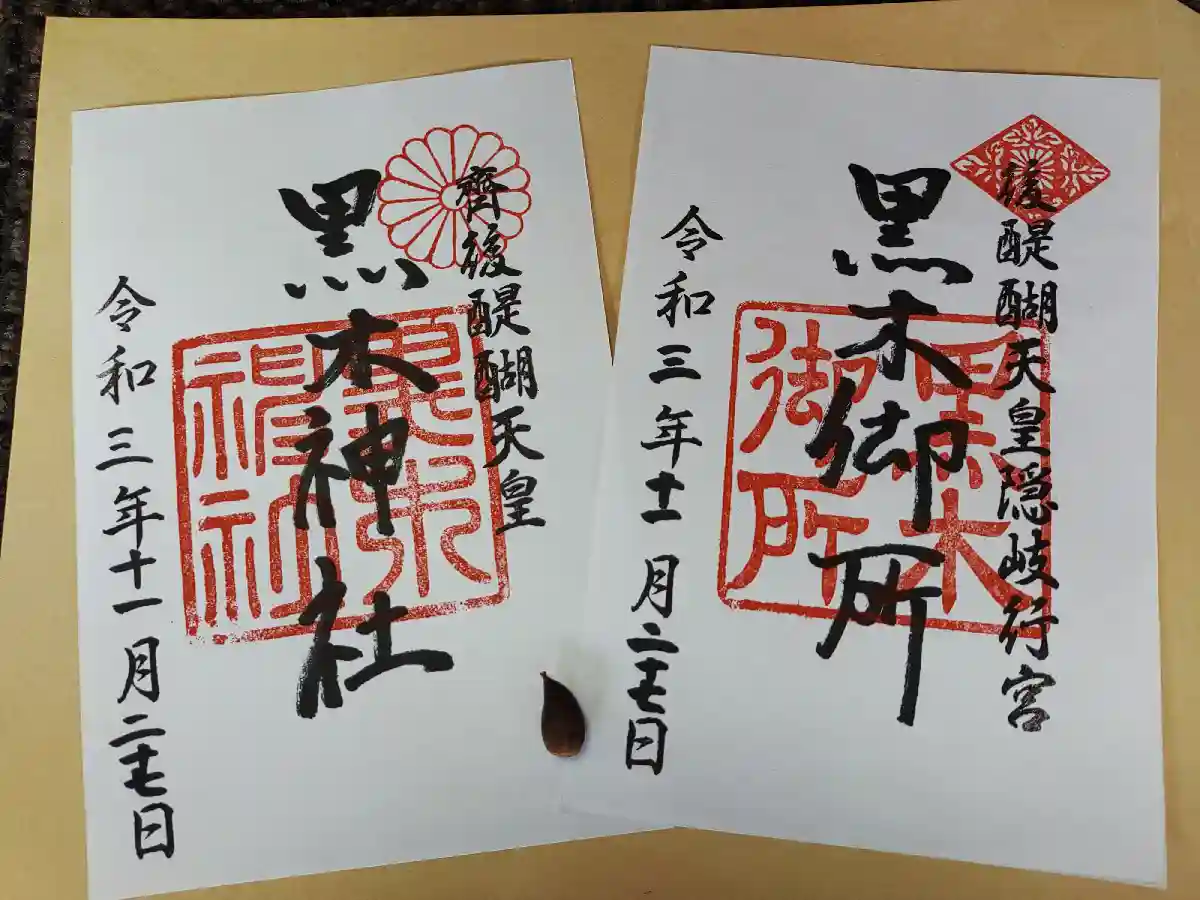 後醍醐天皇隠岐行宮
黒木御所
黒木御所
令和三年十一月二十七日
齊後醍醐天皇
黒木神社
黒木神社
令和三年十一月二十七日